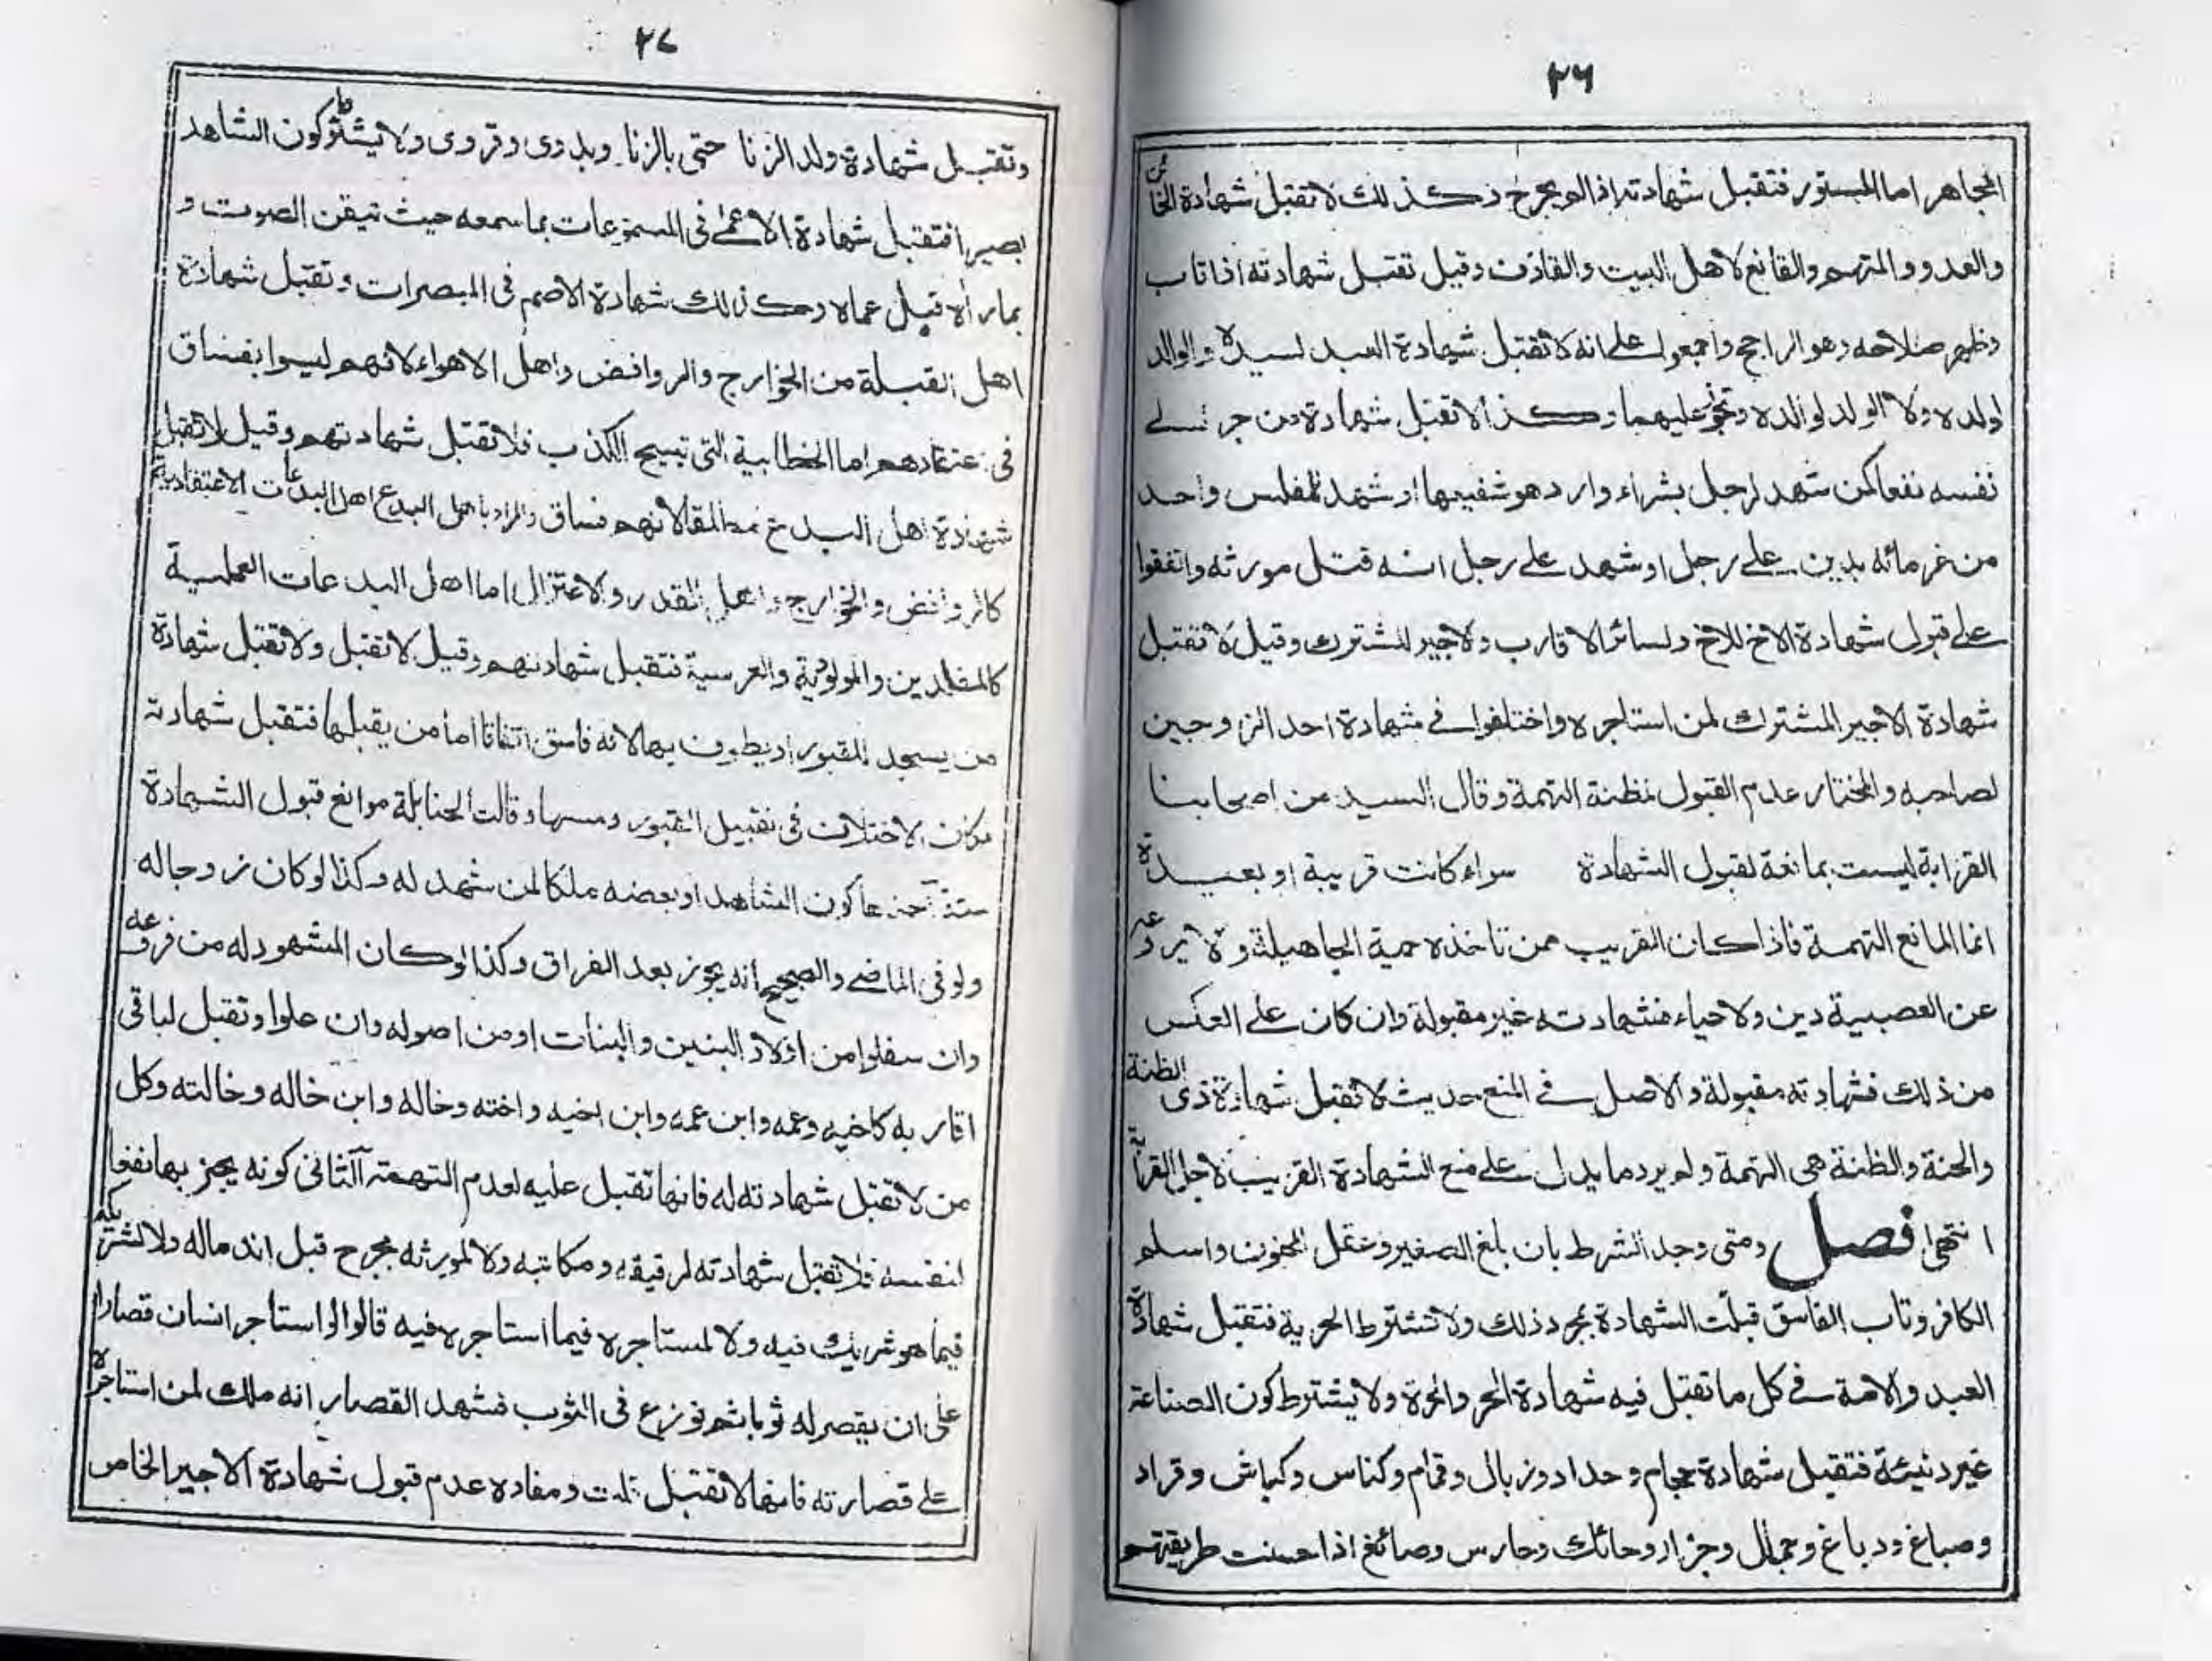 ٢٦
المجاهر اما المستور فتقبل شهادته اذا لم يجرح وكذلك لا تقبل شهادة الخائن
والعدو والمتهم والقانع لاهل البيت والقاذف وقيل تقبل شهادته اذا تاب
وظهر صلاحه وهو الراجح واجمعوا على انه لا تقبل شهادة العبد لسيده والوالد
لولده ولا الولد لوالده وتجوز عليهما وكذا لا تقبل شهادة من جر الى
نفسه نفعا كمن شهد لرجل بشراء دار وهو شفيعها او شهد للمفلس واحد
من غرمائه بدين على رجل او شهد على رجل انه قتل مورثه واتفقوا
على قبول شهادة الاخ للاخ ولسائر الاقارب ولاجير المشترك وقيل لا تقبل
شهادة الاجير المشترك لمن استاجره واختلفوا في شهادة احد الزوجين
لصاحبه والمختار عدم القبول لمظنة التهمة وقال السيد من اصحابنا
القرابة ليست بمانعة لقبول الشهادة سواء كانت قريبة او بعيدة
انما المانع التهمة فاذا كان القريب ممن تاخذه حمية الجاهيلة ولا يردعه
عن العصبية دين ولا حياء فشهادته غير مقبولة وان كان على العكس
من ذلك فشهادته مقبولة والاصل في المنع حديث لا تقبل شهادة ذى الظنة
والحنة والظنة هى التهمة ولم يرد ما يدل على منع الشهادة القريب لاجل القرآبة
انتهى فصل ومتى وجد الشرط بان بلغ الصغير وعقل المجنون واسلم
الكافر وتاب الفاسق قبلت الشهادة بمجرد ذلك ولا تشترط الحرية فتقبل شهادة
العبد والامة في كل ما تقبل فيه شهادة الحر والحرة ولا يشترط كون الصناعة
غير دنيئة فتقبل شهادة حجام وحداد وزبال وقمام وكناس وكباش وقراد
وصباغ ودباغ وجمال وجزار وحائك وحارس وصائغ اذا حسنت طريقتهم
٢٧
وتقبل شهادة ولد الزنا حتى بالزنا وبدوى وقروى ولا يشترط كون الشاهد
بصيرا فتقبل شهادة الاعمى في المسموعات بما سمعه حيث تيقن الصوت و
بما رأه قبل عماه وكذلك شهادة الاصم في المبصرات وتقبل شهادة
اهل القبلة من الخوارج والروافض واهل الاهواء لانهم ليسوا بفساق
في عتقادهم اما الخطابية التى تبيح الكذب فلا تقبل شهادتهم وقيل لا تقبل
شهادة اهل البدع مطلقا لانهم فساق والمراد باهل البدع اهل البدعات الاعتقادية
كالروافض والخوارج واهل القدر والاعتزال اما اهل البدعات العملية
كالمقلدين والمولودية والعرسية فتقبل شهادتهم وقيل لا تقبل ولا تقبل شهادة
من يسجد للقبور او يطوف بها لانه فاسق اتفاقا اما من يقبلها فتقبل شهادته
مكان الاختلاف في تقبيل القبور ومسها وقالت الحنابلة موانع قبول الشهادة
ستة آحدها كون الشاهد او بعضه ملكا لمن شهد له وكذا لو كان زوجا له
ولو في الماضى والصحيح انه يجوز بعد الفراق وكذا لو كان المشهود له من فروعه
وان سفلوا من اولاد البنين والبنات او من اصوله وان علوا وتقبل لباقى
اقاربه كاخيه وعمه وابن عمه وابن اخيه واخته وخاله وابن خاله وخالته وكل
من لا تقبل شهادته له فانها تقبل عليه لعدم التهمة آلثانى كونه يجر بها نفعا
لنفسه فلا تقبل شهادته لرقيقه ومكاتبه ولا لمورثه بجرح قبل اندماله ولا لشريكه
فيما هو شريك فيه ولا لمستاجره فيما استاجره فيه قالوا لو استاجر انسان قصارا
على ان يقصر له ثوبا ثم نوزع في الثوب فشهد القصار انه ملك لمن استاجره
على قصارته فانها لا تقبل قلت ومفاده عدم قبول شهادة الاجير الخاص